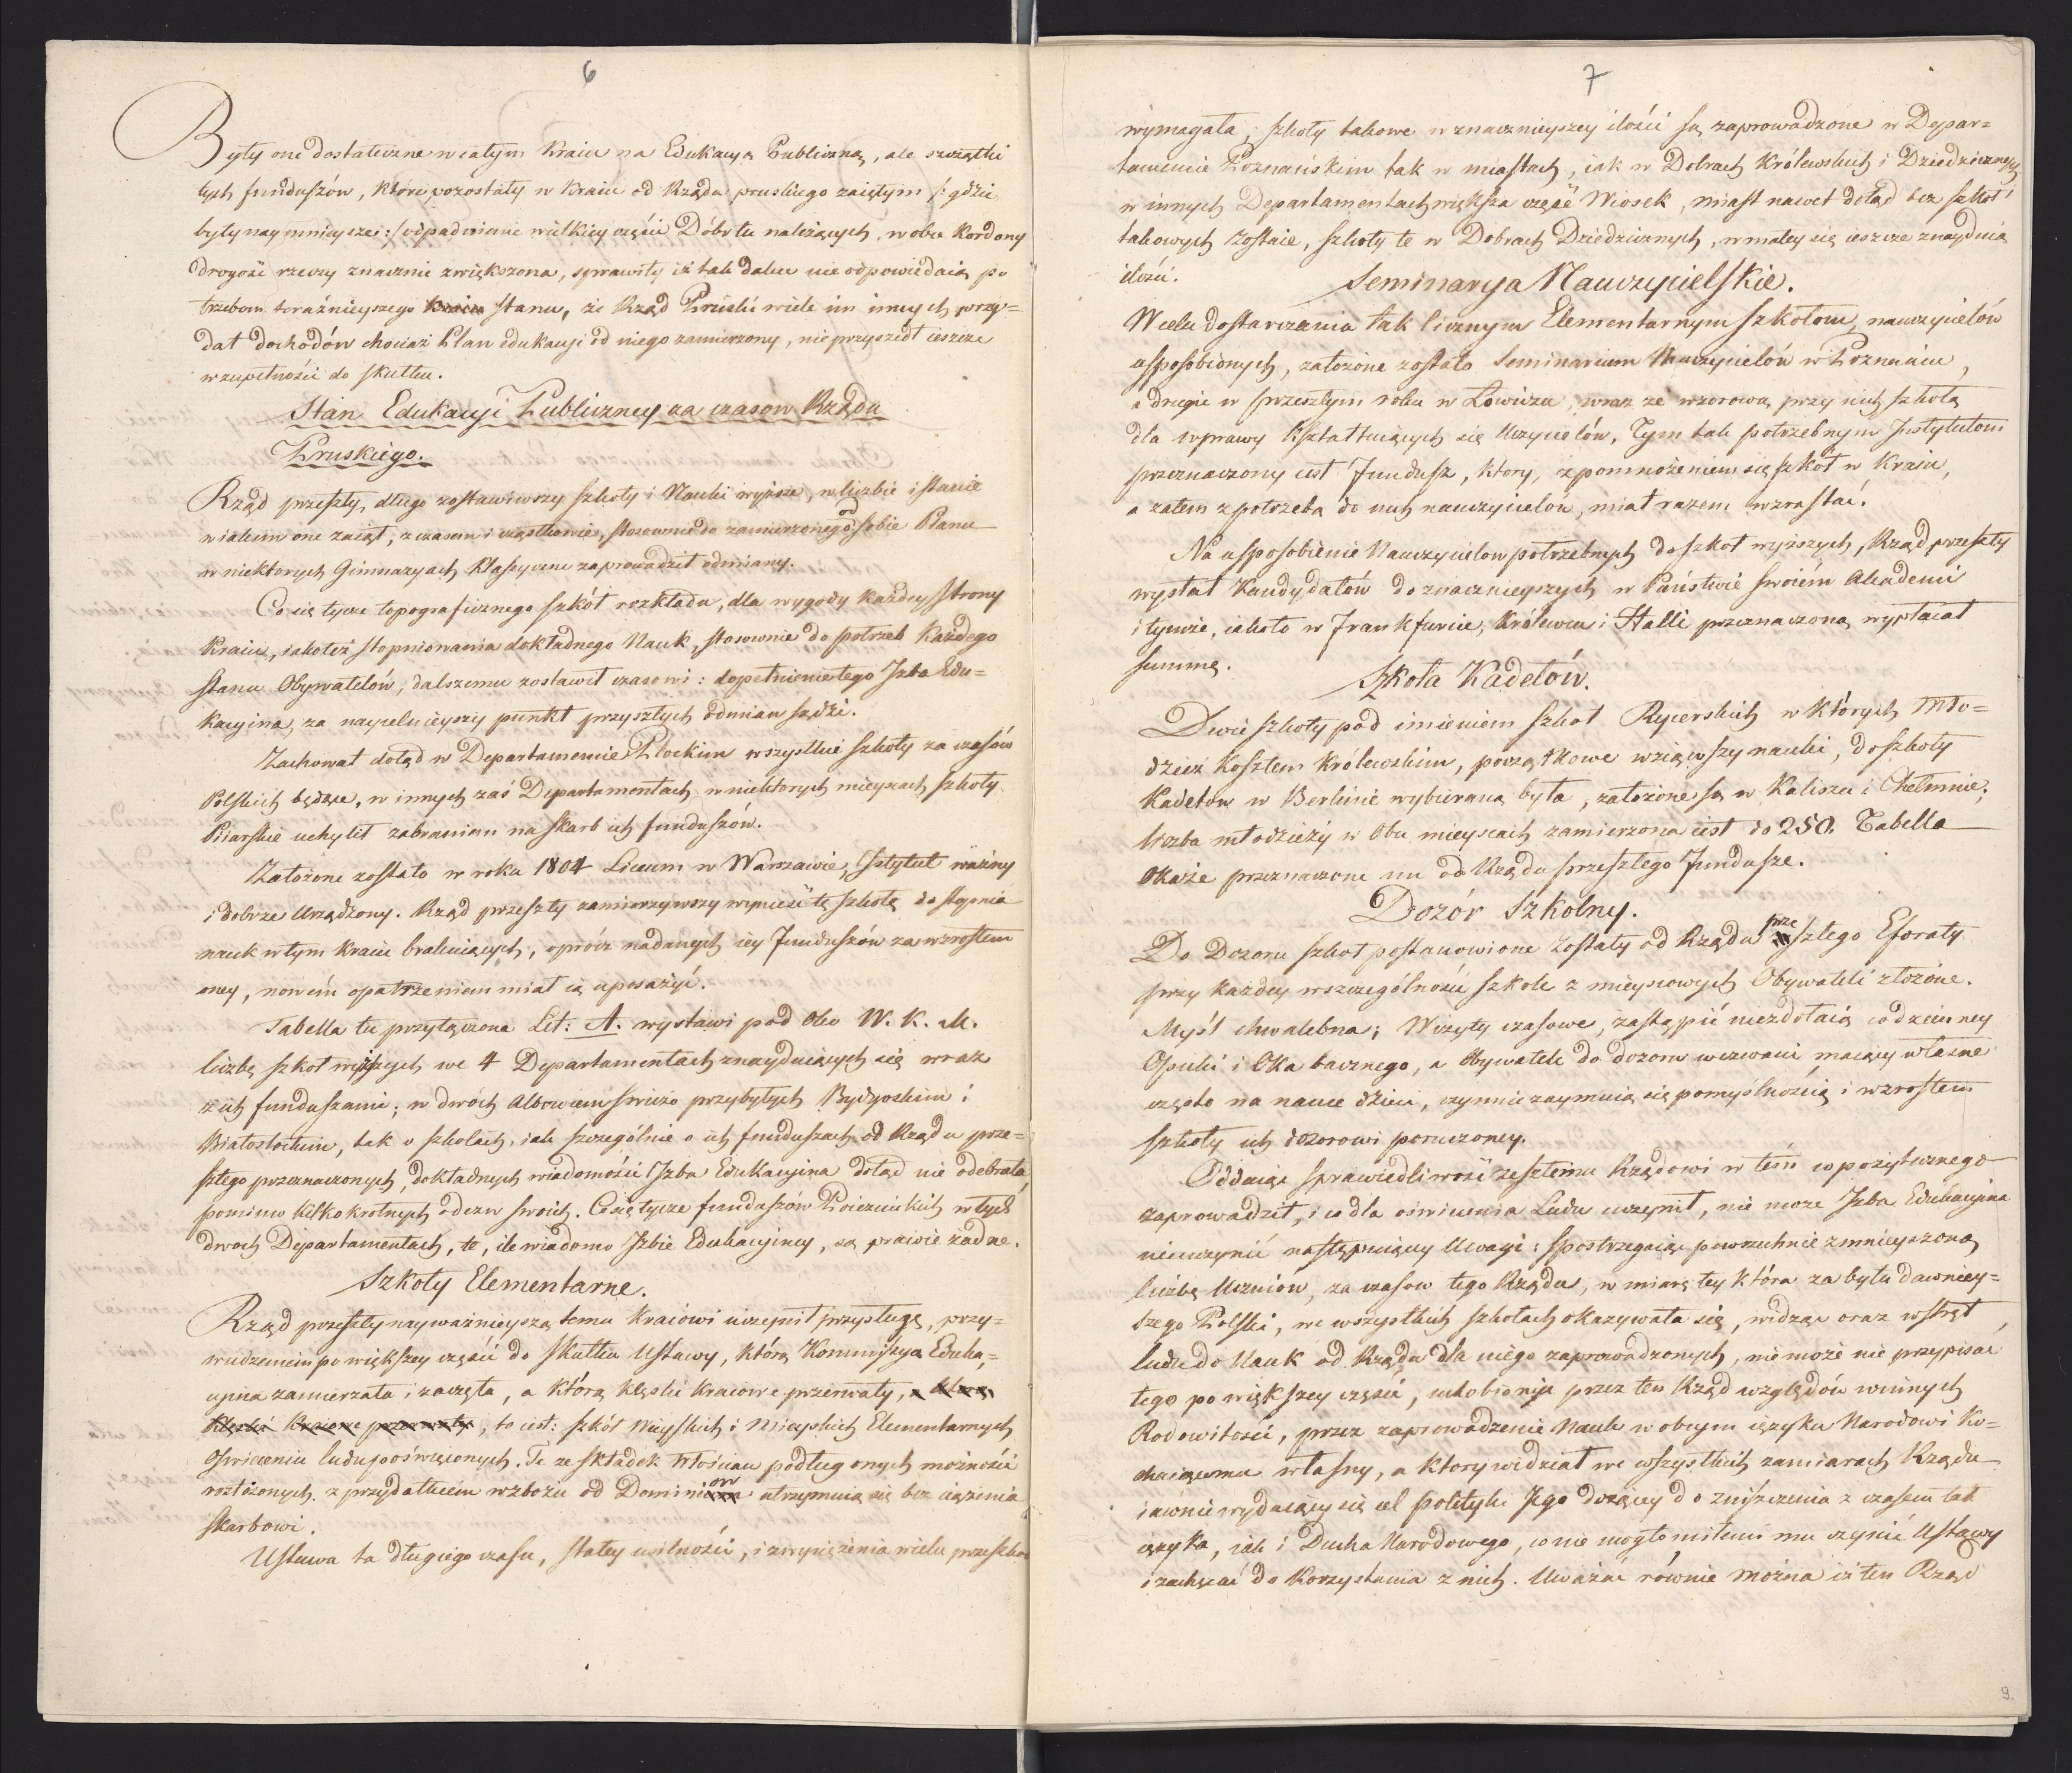 6
Były one dostateczne w całym Kraiu na Edukacyą Publiczną, ale szczątki
tych funduszów, które pozostały w Kraiu od Rządu pruskiego zaiętym /: gdzie
były naymnieysze :/ odpadnienie wielkiey części Dóbr tu należących, w obce Kordony
drogość rzeczy znacznie zwiększona, sprawiły iż tak dalece nie odpowiedaią po
trzebom teraźnieyszego Kraiu stanu, że Rząd Pruski wiele im innych przy=
dał dochodów chociaż Plan edukacyi od niego zamierzony, nie przyszedł ieszcze
w zupełności do skutku.
Stan Edukacyi Publiczney za czasów Rządu
Pruskiego.
Rząd przeszły, długo zostawiwszy szkoły i Nauki wyższe, w liczbie i stanie
w iakim one zaiął, z czasem i cząstkowie, stosownie do zamierzonego od sobie Planu
w niektorych Gimnazyach Klasyczne zaprowadził odmiany.
Co się tycze topograficznego szkół rozkładu, dla wygody każdey strony
Kraiu, iakoteż stopniowania dokładnego Nauk, stosownie do potrzeb każdego
stanu Obywatelów, dalszemu zostawił czasowi: dopełnienie tego Izba Edu=
kacyina, za naycelnieyszy punkt przyszłych odmian sądzi.
Zachował dotąd w Departamencie Płockim wszystkie szkoły za czasów
Polskich będące, w innych zaś Departamentach w niektorych mieyscach szkoły
Piiarskie uchylił zabraniem na skarb ich funduszów.
Założone zostało w roku 1804 Liceum w Warszawie, Istytut ważny
i dobrze Urządzony. Rząd przeszły zamierzywszy wynieść tę szkołę do stopnia
nauk w tym kraiu brakuiących, oprócz nadanych iey Funduszów za wzrostem
oney, nowém opatrzeniem miał ią uposażyć.
Tabella tu przyłączona Lit: A. wystawi pod Oko W. K. M.
liczbę szkoł wyższych we 4 Departamentach znayduiących się wraz
z ich funduszami; w dwóch Albowiem świeżo przybyłych Bydgoskim i
Białostockim, tak o szkołach, iak szczególnie o ich funduszach od Rządu prze=
szłego przeznaczonych, dokładnych wiadomości Izba Edukacyina dotąd nie odebrała
pomimo kilkokrotnych odezw swoich. Co się tycze funduszów Poiezuickich w tych
dwoch Departamentach, te, ile wiadomo Izbie Edukacyiney, są prawie żadne.
Szkoły Elementarne.
Rząd przeszły nayważnieyszą temu Kraiowi uczynił przysługę, przy=
wiedzeniem po większey części do skutku Ustawy, którą Kommissya Eduka=
cyina zamierzała i zaczęła, a którą klęski kraiowe przerwały, a którą
klęski kraiowe przerwały, to iest: szkół Wieyskich i Mieyskich Elementarnych
Oświeceniu ludu poświęconych. Te ze składek Włościan podług onych możności
rozłożonych z przydatkiem w zbożu od Dominiow utrzymuią się bez ciążenia
skarbowi.
Ustawa ta długiego czasu, stałey usilności, i zwyciężenia wielu przeszkod
7
wymagała; szkoły takowe w znacznieyszey ilości są zaprowadzone w Depar=
tamencie Poznańskim tak w miastach, iak w Dobrach Królewskich i Dziedzicznych,
w innych Departamentach większa część Wiosek, miast nawet dotąd bez szkół
takowych zostaie, szkoły te w Dobrach Dziedzicznych, w małey się ieszcze znayduią
ilości.
Seminarya Nauczycielskie.
W celu dostarczania tak licznym Elementarnym szkołom, nauczycielów
usposobionych, założone zostało Seminarium Nauczycielów w Poznaniu,
a drugie w przeszłym roku w Łowiczu, wraz ze wzorową przy nich szkołą
dla wprawy kształcących się Uczycielów. Tym tak potrzebnym Instytutom
przeznaczony iest Fundusz, ktory, z pomnożeniem się szkół w Kraiu,
a zatem z potrzebą do nich nauczycielów, miał razem wzrastać.
Na usposobienie Nauczycielow potrzebnych do szkoł wyższych, Rząd przeszły
wysłał Kandydatów do znacznieyszych w Państwie swoiém Akademii
i tymże, iakoto w Frankfurcie, Królewcu i Halli przeznaczoną wypłacał
summę.
Szkoła Kadetów.
Dwie szkoły pod imieniem szkoł Rycerskich w których Mło=
dzież kosztem królewskim, początkowe wziąwszy nauki, do szkoły
Kadetow w Berlinie wybieraną była, założone są w Kaliszu i Chełmnie;
liczba młodzieży w Obu mieyscach zamierzona iest do 250. Tabella
Okaże przeznaczone im od Rządu przeszłego Fundusze.
Dozór Szkolny.
Do Dozoru szkoł postanowione zostały od Rządu przeszłego Eforaty
przy każdey w szczególności szkole z mieyscowych Obywateli złożone.
Myśl chwalebna; Wizyty czasowe, zastąpić niezdołaią codzienney
Opieki i Oka bacznego, a Obywatele do dozoru wezwani maiący własne
często na nauce dzieci, czynnie zaymuią się pomyślnością i wzrostem
szkoły ich dozorowi poruczoney.
Oddaiąc sprawiedliwość zeszłemu Rządowi w tém co pożytecznego
zaprowadził, i co dla oświecenia Ludu uczynił, nie może Izba Edukacyina
nieuczynić następuiącey Uwagi: spostrzegaiąc powszechnie zmnieyszoną
liczbę Uczniów, za czasow tego Rządu, w miarę tey która za bytu dawniey=
szego Polski, we wszystkich szkołach okazywała się, widząc oraz wstręt
ludu do Nauk od Rządu dla niego zaprowadzonych, nie może nie przypisać
tego po większey części, uchobieniu przez ten Rząd względów winnych
Rodowitości, przez zaprowadzenie Nauk w obcym ięzyku Narodowi Ko=
chaiącemu własny, a ktory widział we wszystkich zamiarach Rządu
iawnie wydaiący się cel polityki Jego dążącey do zniszczenia z czasem tak
ięzyka, iak i Ducha Narodowego, co nie mogło miłemi mu czynić Ustawy
i zachęcać do korzystania z nich. Uważać równie można iż ten Rząd
9.